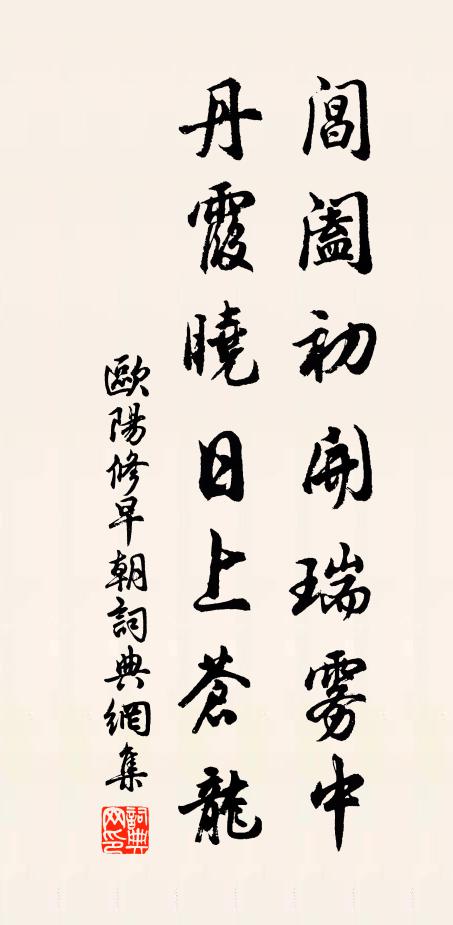 閶闔初開瑞霧中
丹霞曉日上蒼龍
歐陽修早朝詞典網集
詞典網印